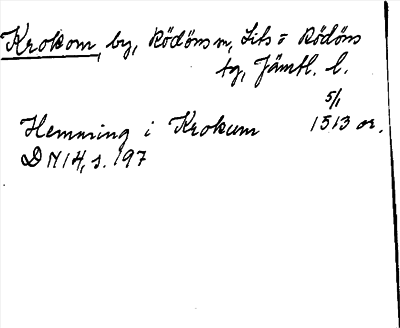 Krokom, by, Rödöns sn, Lits o Rödöns
tg, Jämtl. l.
5/1
Hemming i Krokum 1513 or.
DN 14, s. 197